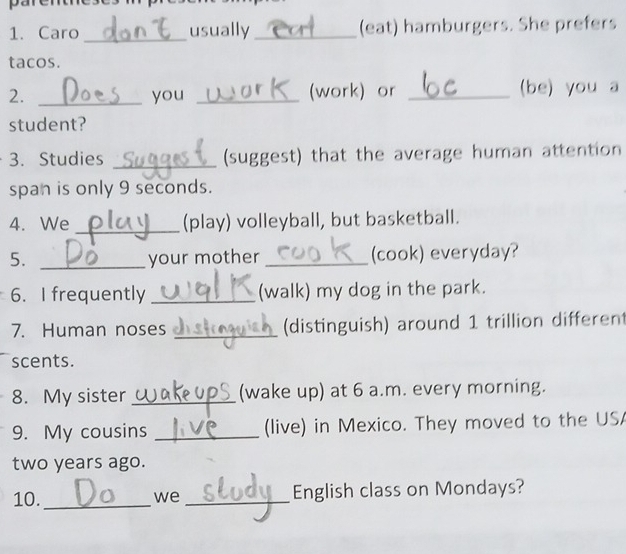 parentheses in present simple.
1. Caro don't usually eat (eat) hamburgers. She prefers
tacos.
2. Does you work (work) or be (be) you a
student?
3. Studies suggest (suggest) that the average human attention
span is only 9 seconds.
4. We play (play) volleyball, but basketball.
5. Do your mother cook (cook) everyday?
6. I frequently walk (walk) my dog in the park.
7. Human noses distinguish (distinguish) around 1 trillion different
scents.
8. My sister wake ups (wake up) at 6 a.m. every morning.
9. My cousins live (live) in Mexico. They moved to the USA
two years ago.
10. Do we study English class on Mondays?